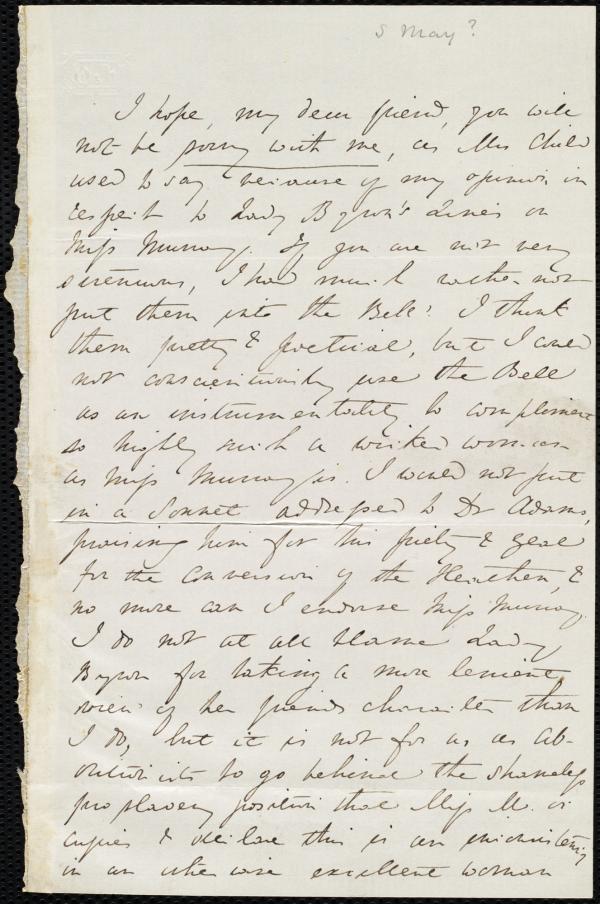 5 May?
I hope, my dear friend, you will
not be sorry with me, as Mrs Child
used to say because of my opinion in
respect to Lady Byron's Lines on
Miss Murray. If you are not very
strenuous, I had much rather not
put them into the Bell. I think
them pretty & poetical, but I could
not conscientiously use the Bell
as an instrumentality to compliment
so highly such a wicked woman
as Miss Murray is. I would not put
in a Sonnet addressed to Dr Adams,
praising him for his piety & zeal
for the conversion of the Heathen, &
no more can I endorse Miss Murray.
I do not at all blame Lady
Byron for taking a more lenient
view of her friends character than
I do, but it is not for us as Ab-
olitionists to go behind the shameless
pro slavery position that Miss M. oc-
cupies & declare this is an inconsistency
in an otherwise excellent woman